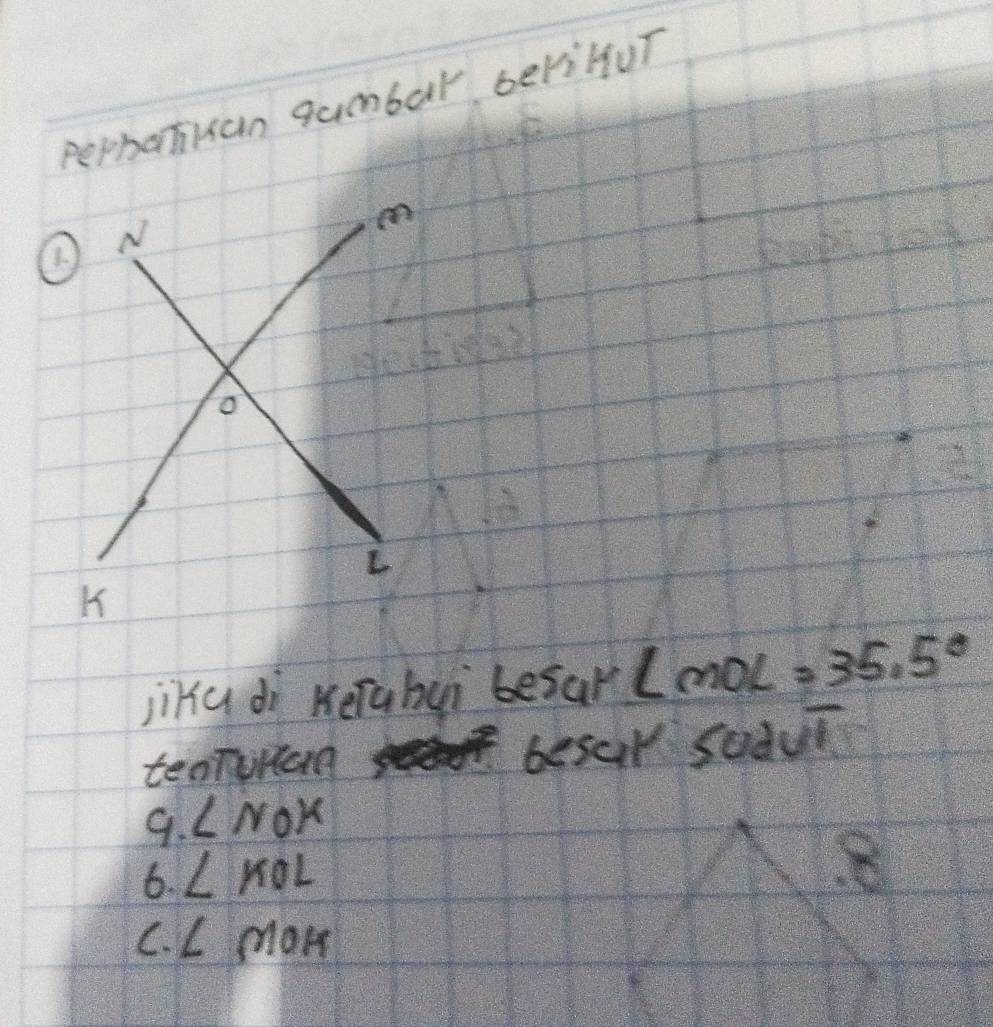 Perhatikan gambar berikut
1. N
M
O
L
K
jika di ketahui besar ∠ MOL = 35,5°
tentukan besar sudut
a. ∠ NOK
b. ∠ KOL
c. ∠ MOK